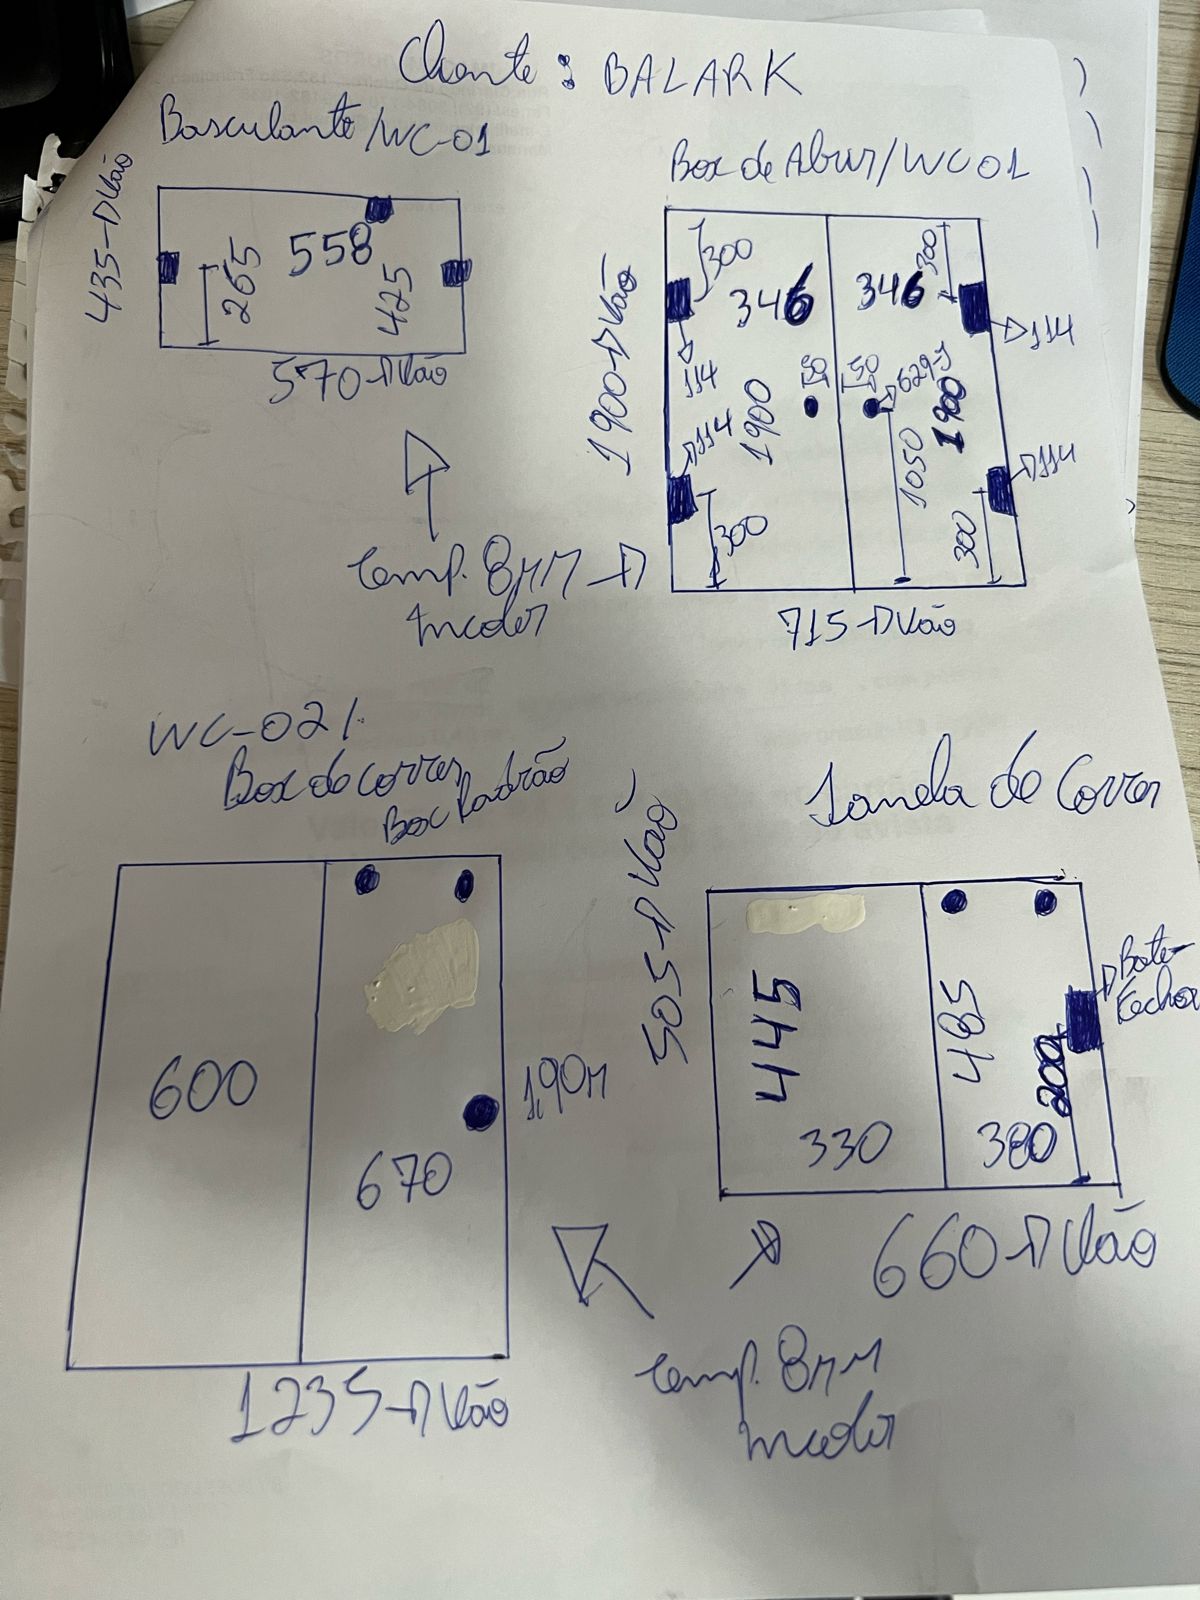 Cliente: BALARK
Basculante/WC-01
435→Vão
265
558
425
570→Vão
Box de Abrir/WC01
1900→Vão
300
346
114
1900
114
300
50
346
300
114
50
629-J
1900
1050
114
300
715→Vão
Temp. 8MM
Incolor
WC-02/
Box de correr
Box Padrão
600
670
1,90M
1235→Vão
Janela de Correr
505→Vão
445
330
485
200
380
Bate-
Fecha
660→Vão
Temp. 8MM
Incolor